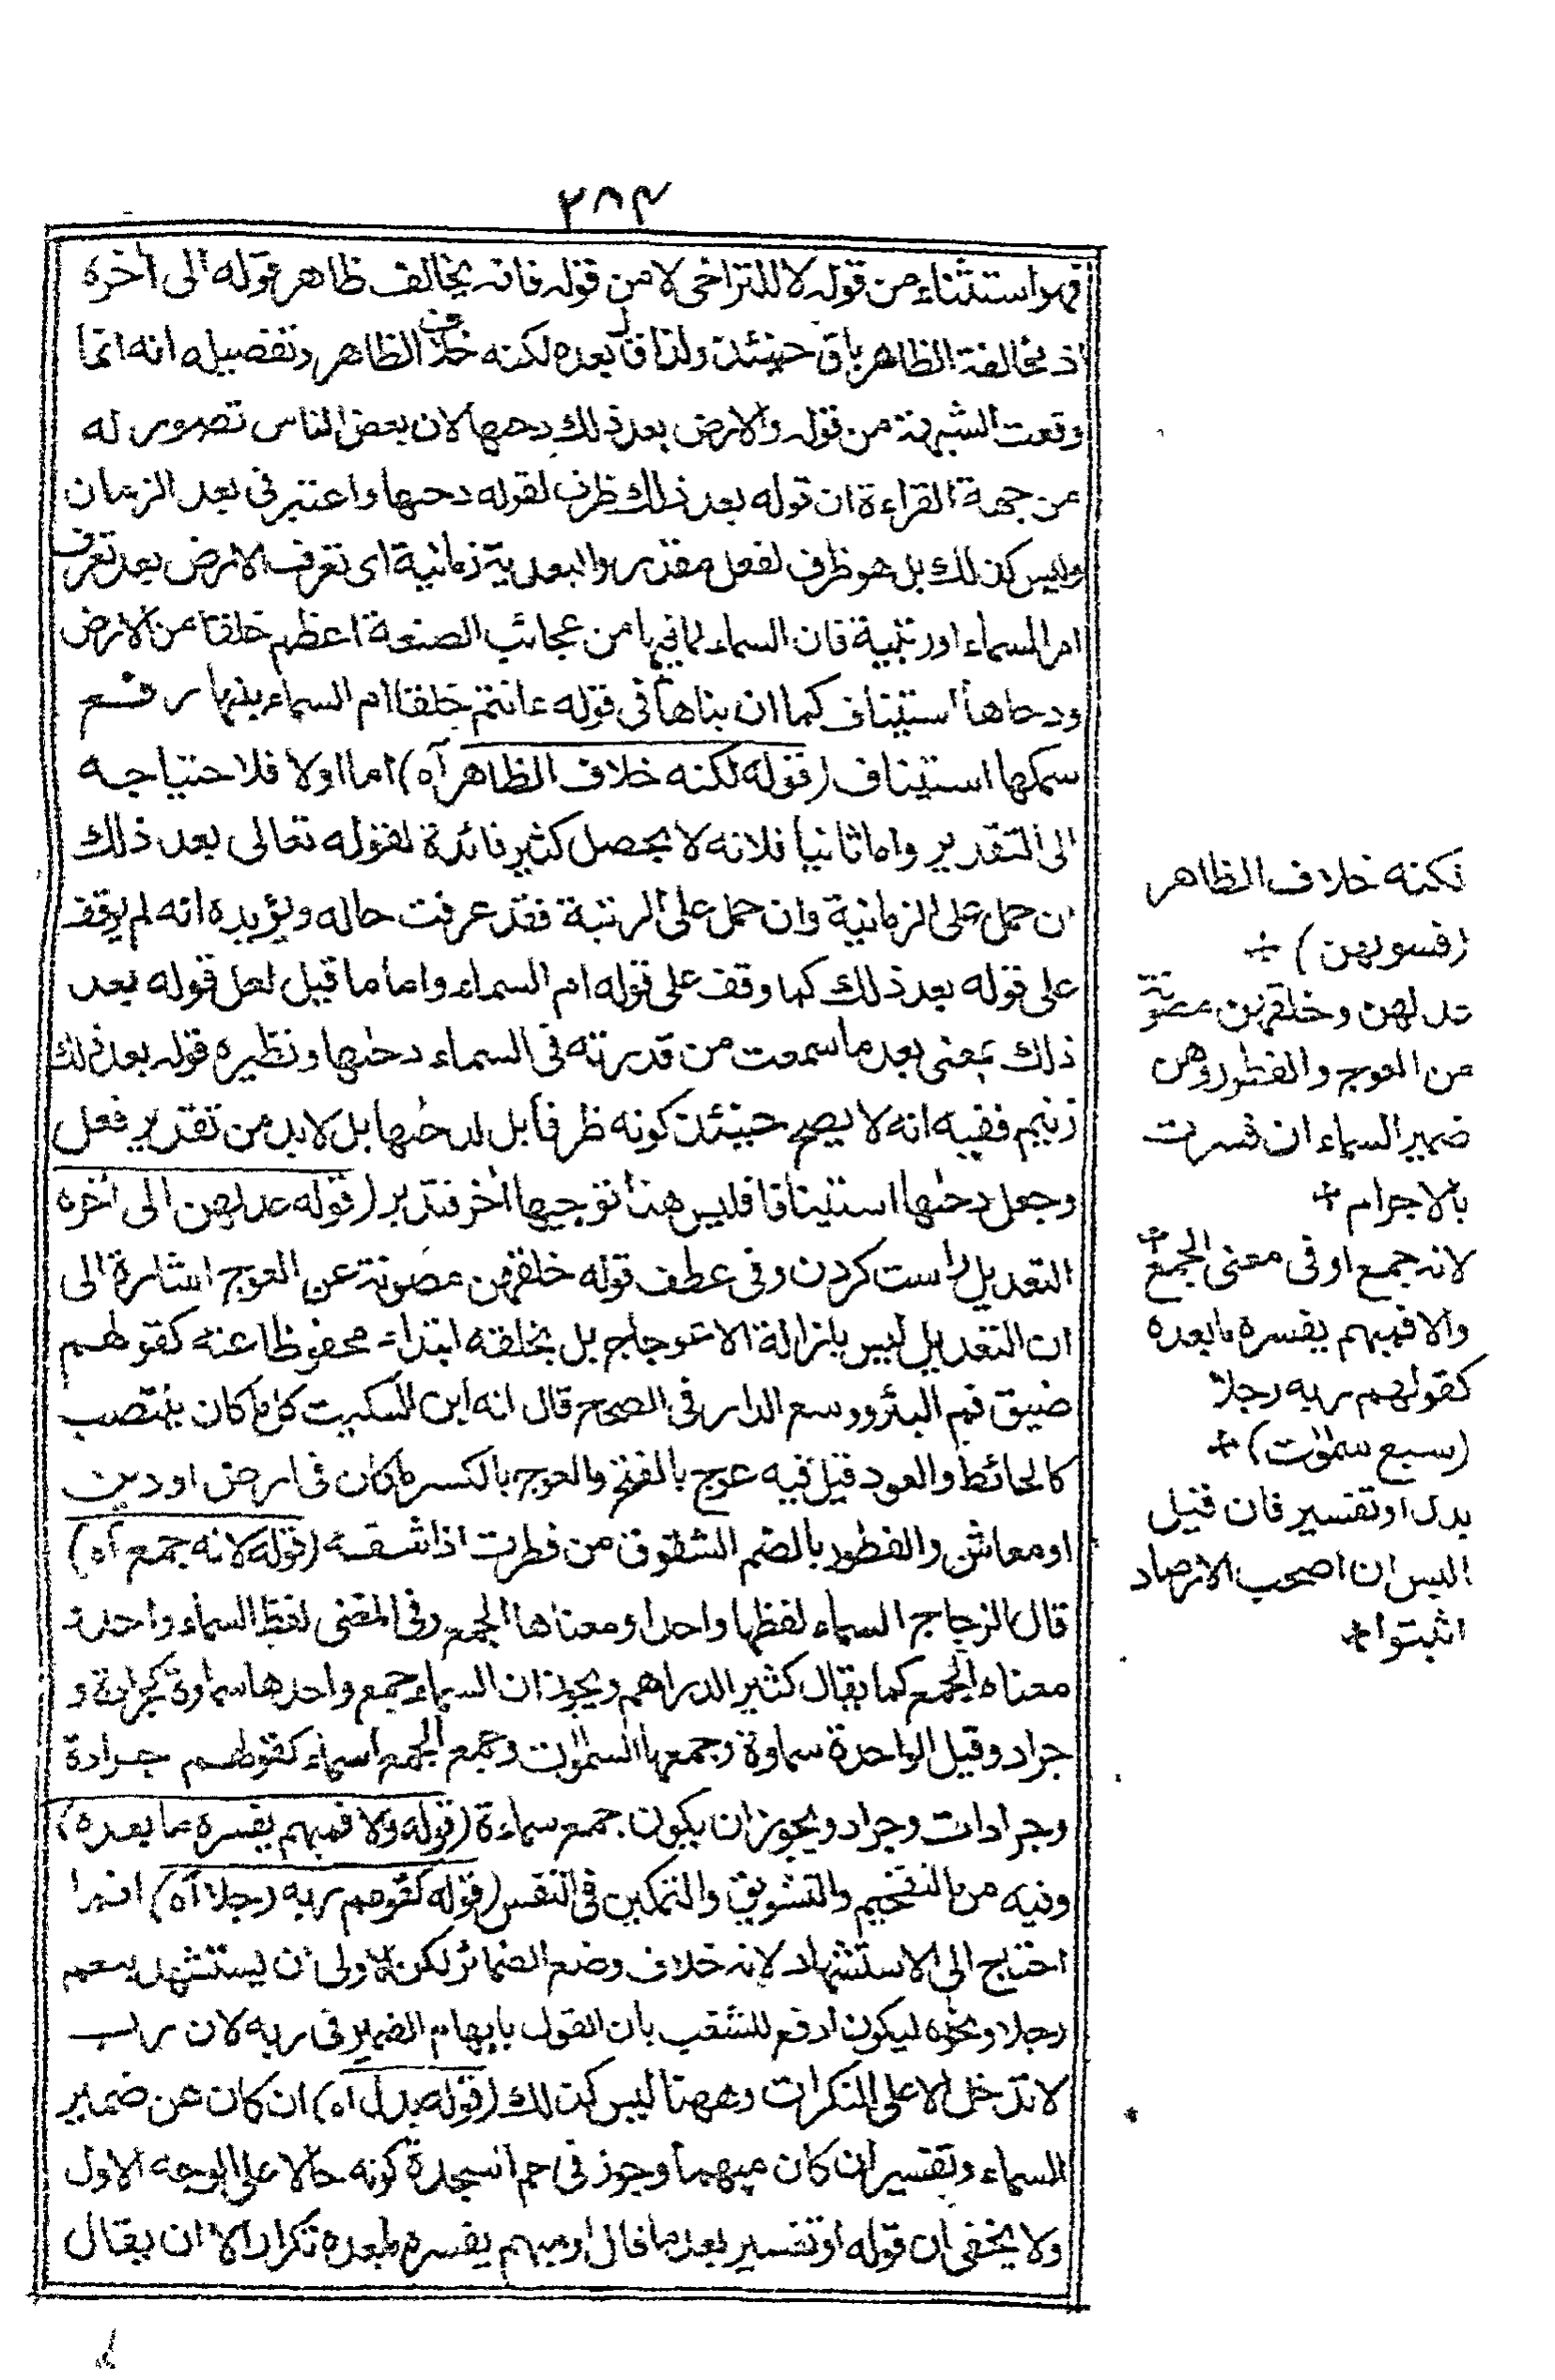 ٢٨٤
فهو استثناء من قوله لا للتراخى لا من قوله فانه يخالف ظاهر قوله الى اخره
اذ مخالفة الظاهر باق حينئذ ولذا قال بعده لكنه خلاف الظاهر وتفصيله انه انما
وقعت الشبهة من قوله والارض بعد ذلك دحها لان بعض الناس تصور له
من جهة القراءة ان قوله بعد ذلك ظرف لقوله دحها واعتبر فى بعد الزمان
وليس كذلك بل هو ظرف لفعل مقدر والبعدية زمانية اى تعرف الارض بعد تعرف
امر السماء او رتبية فان السماء لما فيها من عجائب الصنعة اعظم خلقا من الارض
ودحاها استيناف كما ان بناها فى قوله ءانتم خلقا ام السماء بنها رفع
سمكها استيناف (قوله لكنه خلاف الظاهر آه) اما اولا فلاحتياجه
الى التقدير واما ثانيا فلانه لا يحصل كثير فائدة لقوله تعالى بعد ذلك
ان حمل على الزمانية وان حمل على الرتبة فقد عرفت حاله ويؤيده انه لم يوقف
على قوله بعد ذلك كما وقف على قوله ام السماء واما ما قيل لعل قوله بعد
ذلك بمعنى بعد ما سمعت من قدرته فى السماء دحها ونظيره قوله بعد ذلك
زنيم ففيه انه لا يصح حينئذ كونه ظرفا بل لدحها بل لابد من تقدير فعل
وجعل دحها استينافا فليس هذا توجيها اخر فتدبر (قوله عدلهن الى اخره
التعديل راست كردن وفى عطف قوله خلقهن مصونة عن العوج اشارة الى
ان التعديل ليس بازالة الاعوجاج بل بخلقه ابتداء محفوظا عنه كقولهم
ضيق فم البئر ووسع الدار فى الصحاح قال انه ابن السكيت كل ما كان ينتصب
كالحائط والعود قيل فيه عوج بالفتح والعوج بالكسر ما كان فى ارض او دين
او معاش والفطور بالضم الشقوق من فطرت اذا شقه (قوله لانه جمع آه)
قال الزجاج السماء لفظها واحد ومعناها الجمع وفى المغنى لفظ السماء واحدة
معناه الجمع كما يقال كثير الدراهم ويجوز ان السماء جمع واحدها سماوة كجرادة و
جراد وقيل الواحدة سماوة وجمعها السموات وجمع الجمع اسماء كقولهم جرادة
وجرادات وجراد ويجوز ان يكون جمع سماءة (قوله والا فمبهم يفسره ما بعده)
وفيه من التفخيم والتشويق والتمكين فى النفس (قوله كقولهم ربه رجلا آه) انما
احتاج الى الاستشهاد لانه خلاف وضع الضمائر لكن الاولى ان يستشهد بنعم
رجلا ونحوه ليكون ادفع للشغب بان القول بابهام الضمير فى ربه لان رب
لا تدخل الا على النكرات وههنا ليس كذلك (قوله بدل اه) ان كان هن ضمير
السماء وتفسير ان كان مبهما وجوز فى حم السجدة كونه حالا على الوجه الاول
ولا يخفى ان قوله او تفسير بعد ما قال او مبهم يفسره ما بعده تكرار الا ان يقال
لكنه خلاف الظاهر
(فسوىهن)
عدلهن وخلقهن مصونة
من العوج والفطور وهن
ضمير السماء ان فسرت
بالاجرام
لانه جمع او فى معنى الجمع
والا فمبهم يفسره ما بعده
كقولهم ربه رجلا
(سبع سموت)
بدل او تفسير فان قيل
اليس ان اصحب الارصاد
اثبتوا